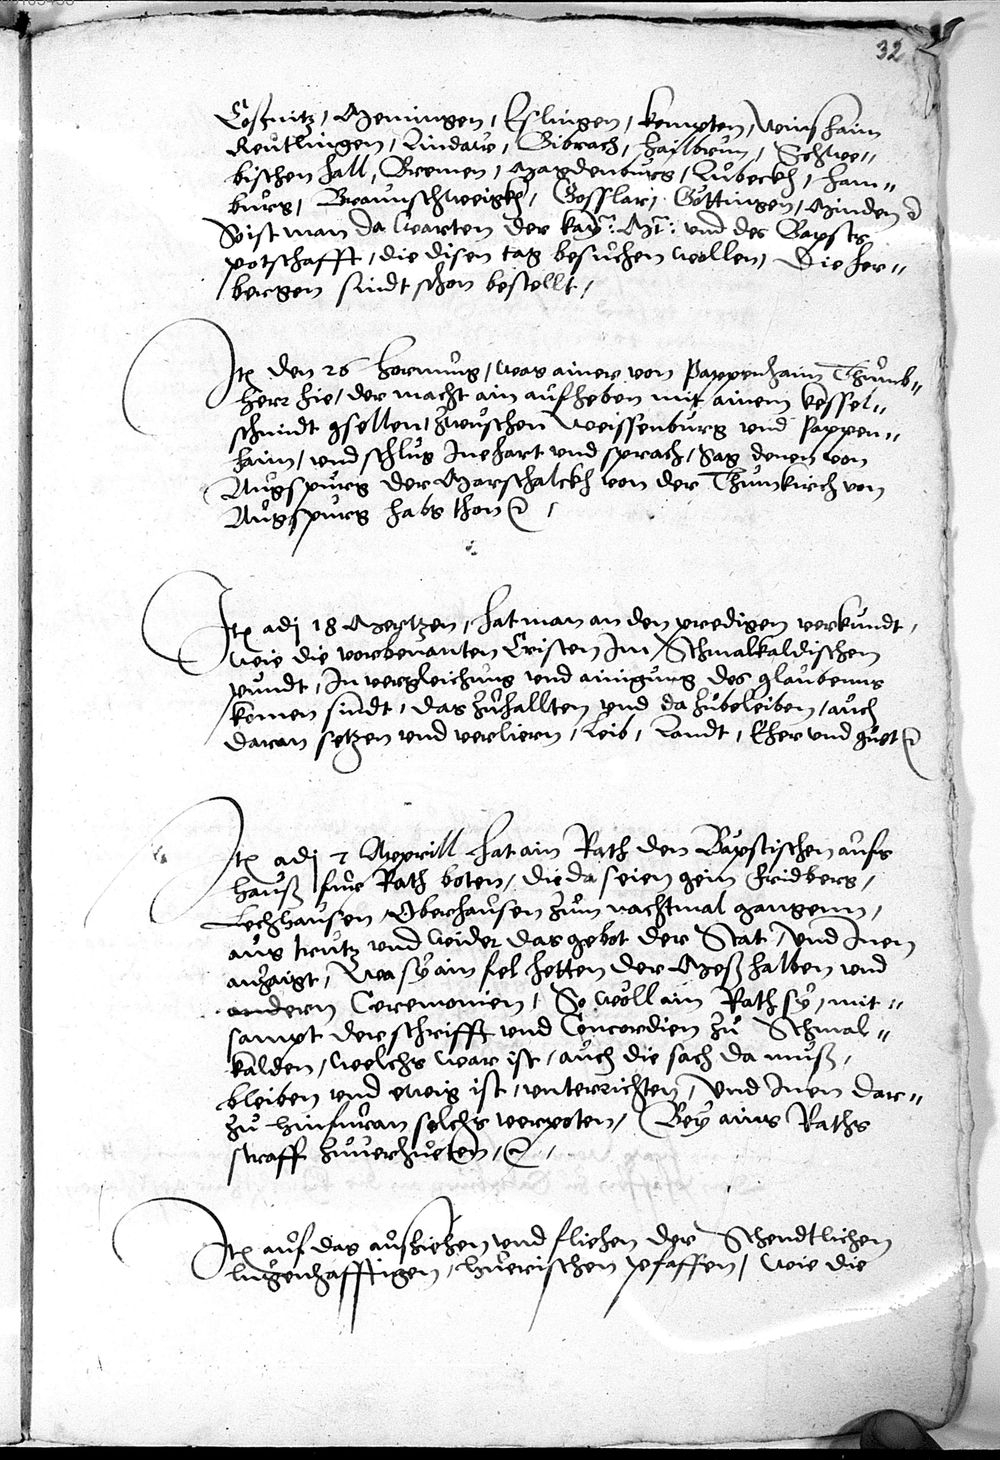 32
Costnitz, Memingen, Eslingen, kempten, Winshaim
Reutlingen, Lindaw, Bibrach, Hailbrun, Schwe„
bischen Hall, Bremen, Magdenburg, Lubeckh, Ham„
burg, Braunschweigkh, Gosslar, Göttingen, Minden
So ist man da warten der kay: Mt: und des Bapsts
potschafft, die disen tag besuchen wollen, Die her„
bergen sindt schon bestellt,
Itē den 26 hornung, was ainer von Pappenhaim Thumb„
herr hie, der macht ain aufheben mit ainem kessel„
schmidt gsellen, zwuschen Weissenburg und Pappen„
haim, und schlug Ine hart und sprach, Sag denen von
Augspurg der Marschalckh von der Thumkirch von
Augspurg habs thon
Itē adj 18 Mertzen, hat man an den predigen verkundt,
wie die vorbenanten Cristen Im Schmalkaldischen
pundt, In vergleichung und ainigung des glaubenns
komen sindt, das zuhallten und da zubeleiben, auch
daran setzen und verliern, Leib, Landt, Eher und guet
Itē adj 7 Apprill hat ain Rath den Bapstischen aufs
hauß fur Rath boten, die da seien gein Fridberg,
Lechhausen, Oberhausen zum nachtmal gangenn,
aus trutz und wider das gebot der Stat, und Inen
anzaigt, Wa sy ain fel hetten der Meß halben und
andern Ceremonien, So wöll ain Rath sy, mit„
sampt der schrifft und Concordien zu Schmal„
kalden, welchs war ist, auch die sach da muß,
bleiben und ewig ist, unterrichten, und Inen dar„
zu hinfuran solchs verpoten, Bey ains Raths
straff zuverhueten,
Itē auf das ausziehen und fliehen der Schendtlichen
lugenhafftigen, huerischen pfaffen, wie die